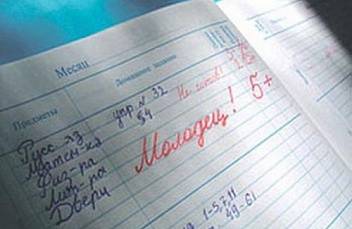 Месяц
Предметы
Домашнее задание
Русс. яз
упр. N 32
54
Матем-ка
Физ-ра
Молодец! 5+
Лит-ра
Двери
1-5, 7, 11
49-61